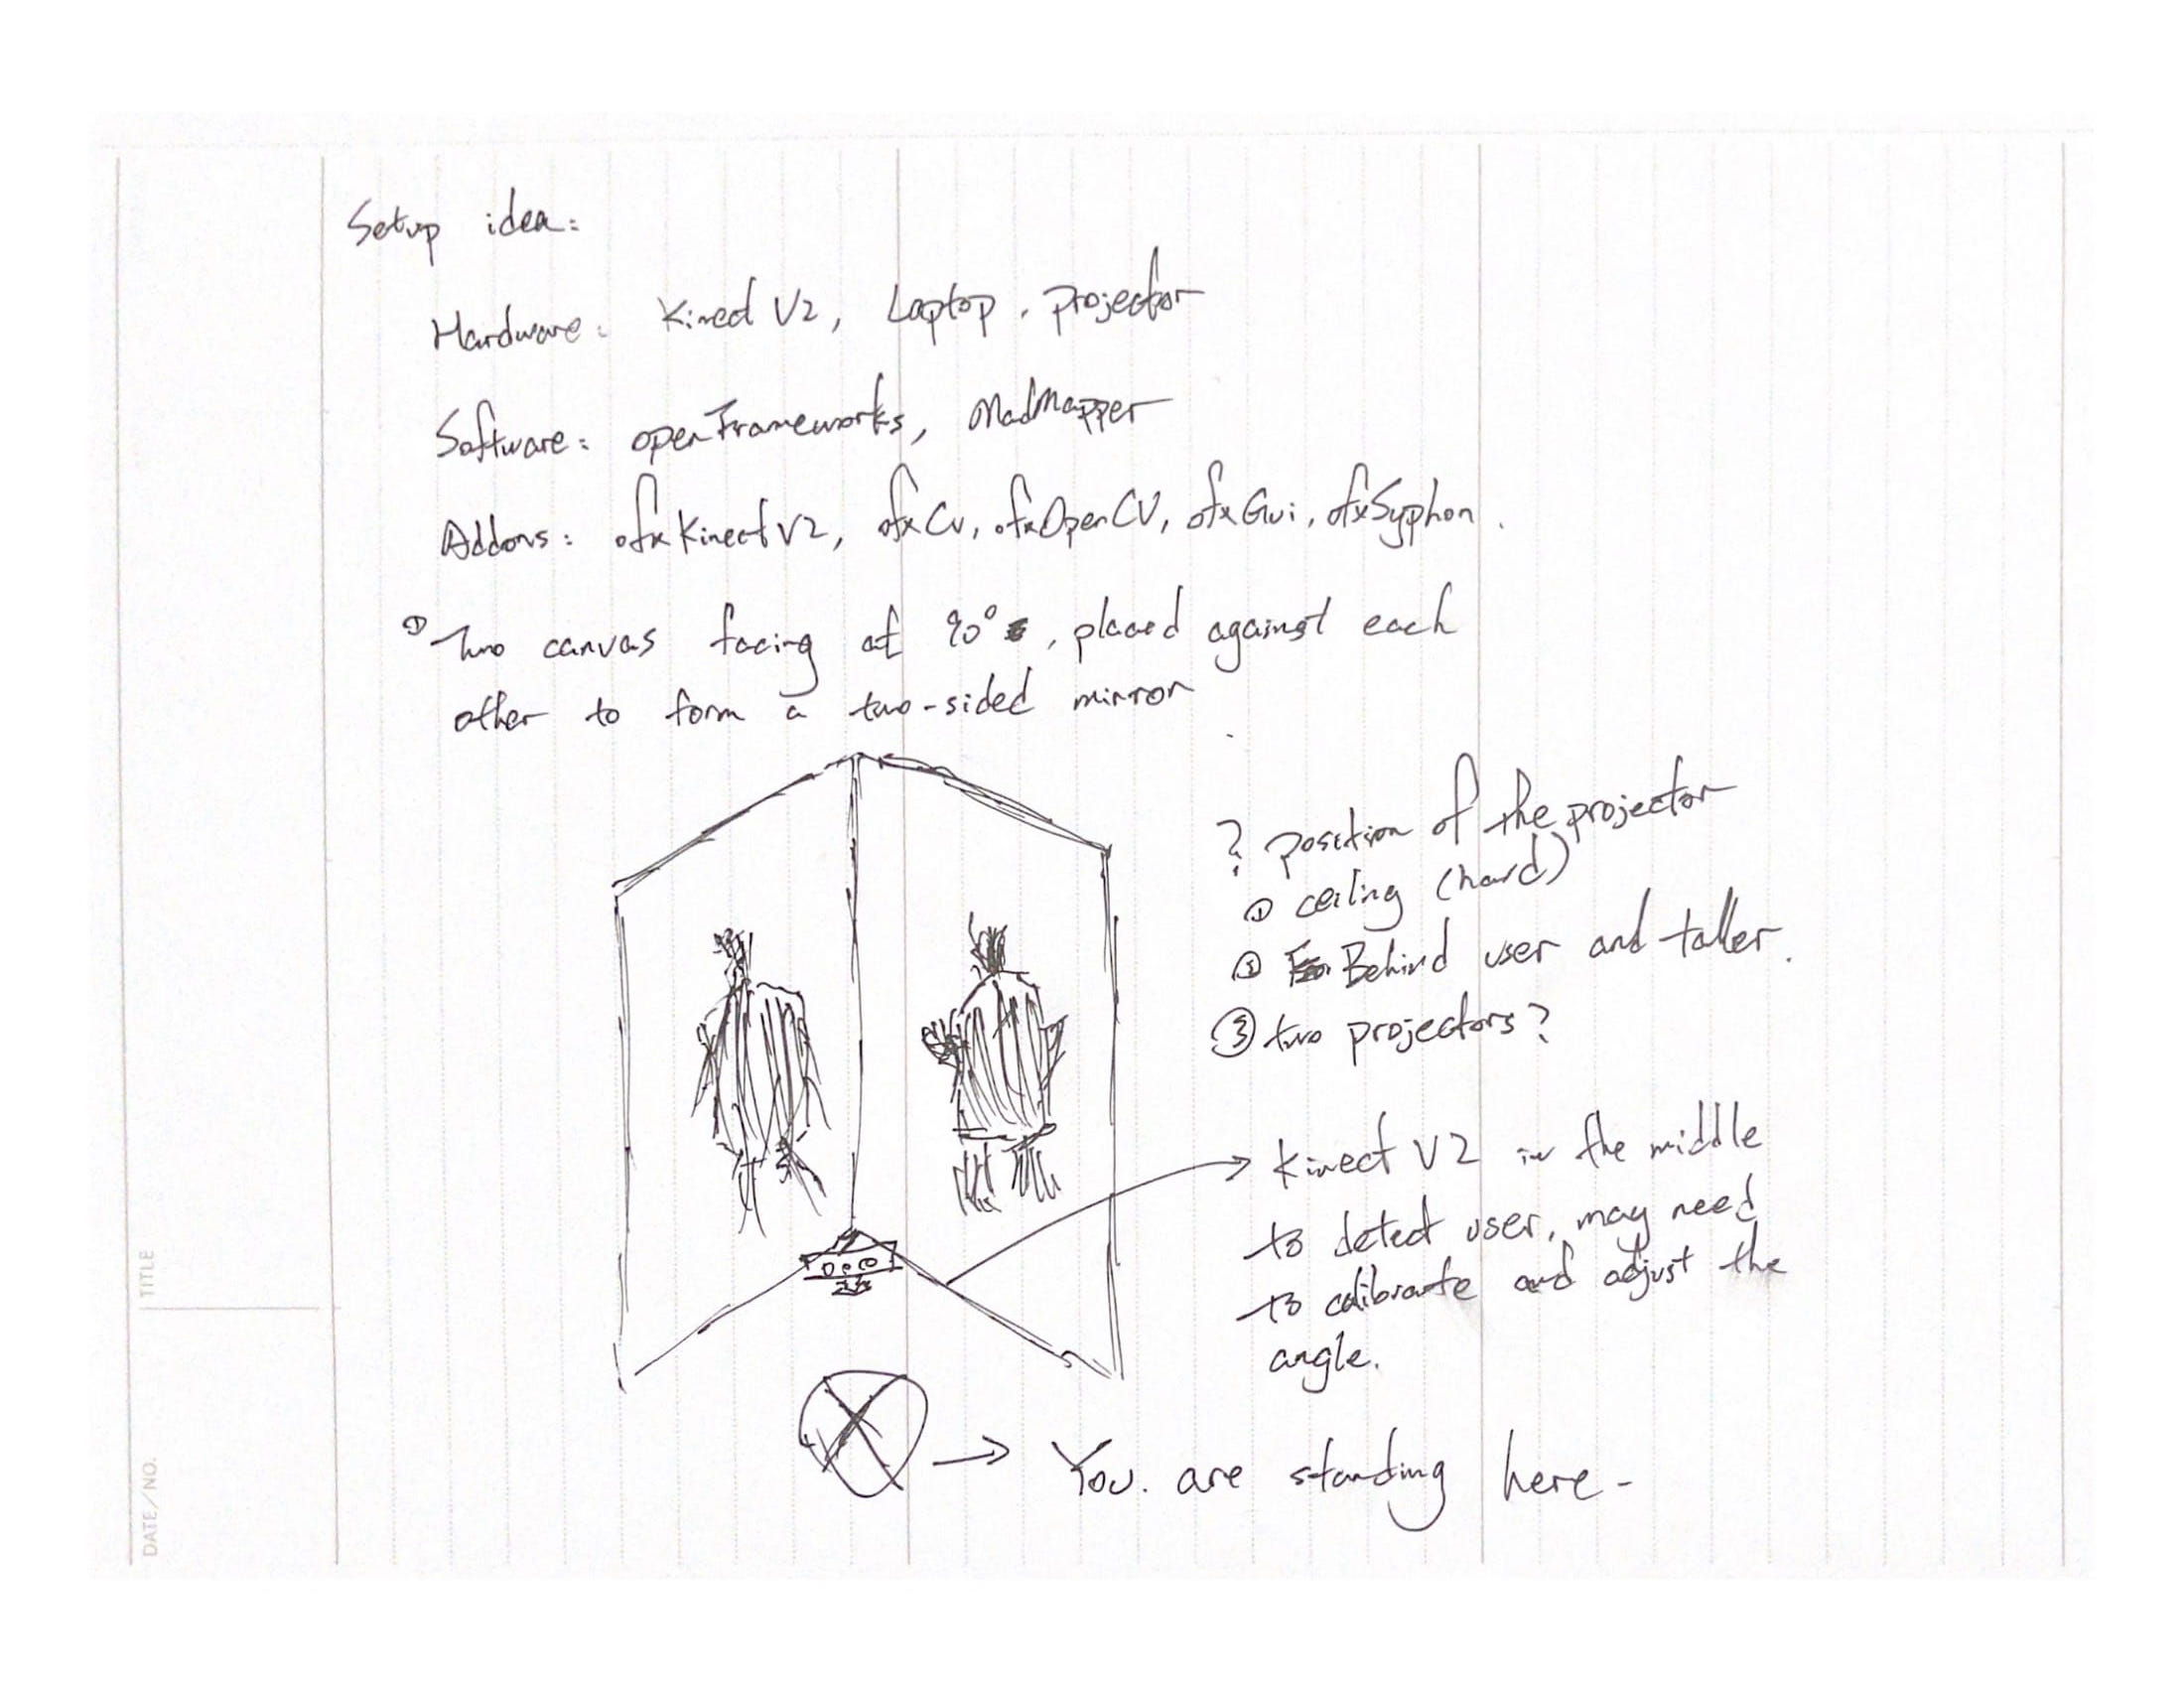 Setup idea:
Hardware: Kinect V2, Laptop, projector
Software: openFrameworks, MadMapper
Addons: ofxKinectV2, ofxCv, ofxOpenCV, ofxGui, ofxSyphon.
① Two canvas facing at 90°, placed against each
other to form a two-sided mirror
? position of the projector
① ceiling (hard)
② Behind user and taller.
③ two projectors?
Kinect V2 in the middle
to detect user, may need
to calibrate and adjust the
angle.
You are standing here-
TITLE
DATE/NO.